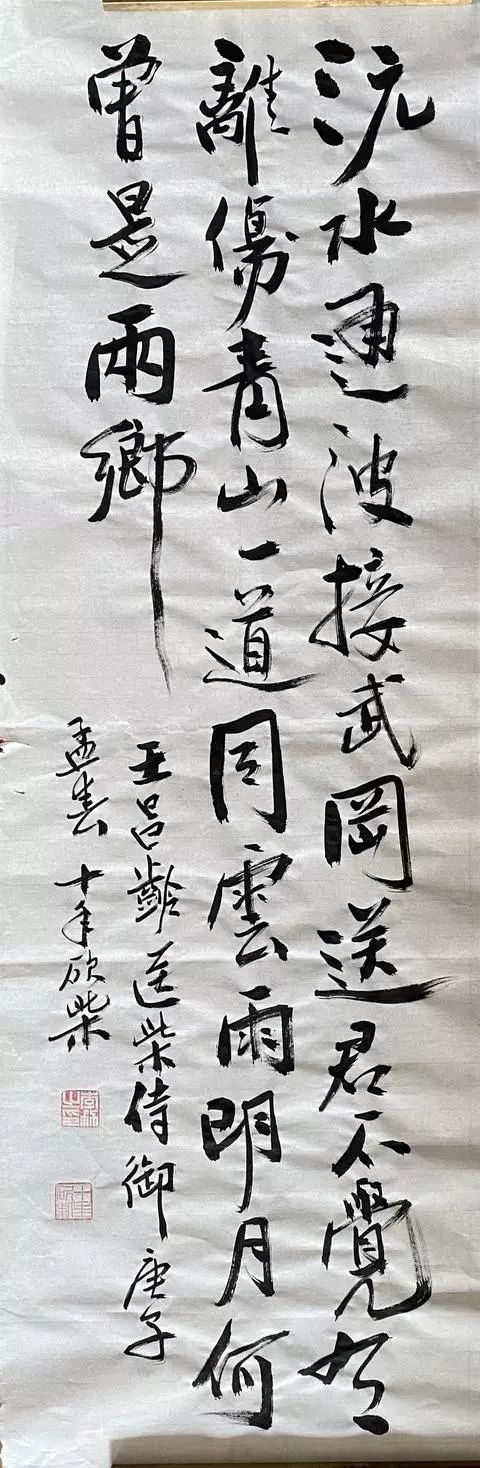 沅水通波接武岡送君不覺有
離傷青山一道同雲雨明月何
曾是兩鄉
王昌齡送柴侍御 庚子
孟春 十年砍柴
十年砍柴